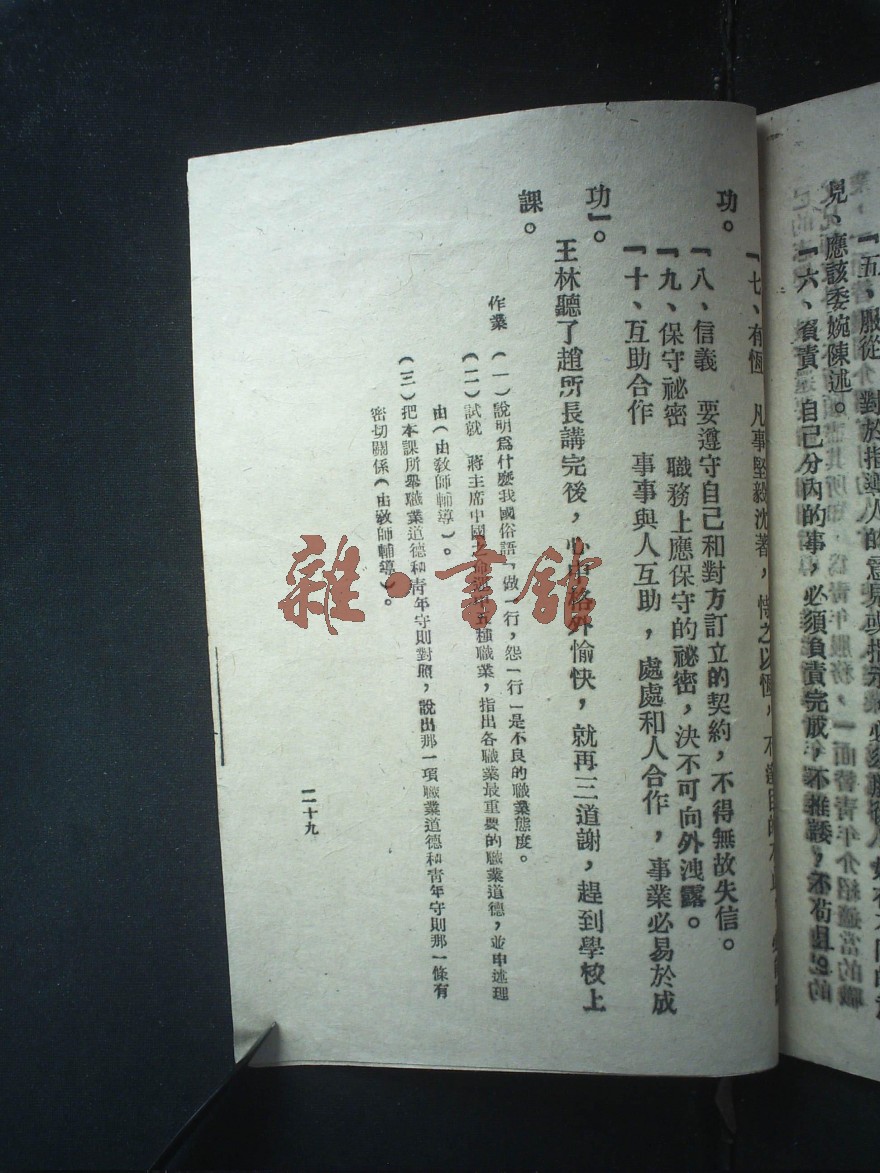 『五、服從　對於指導人的意見或指示
見、應該委婉陳述。
『六、負責　自己分內的事，必須負責完成，不推諉，不苟且
『七、有恆　凡事堅毅沈著，恃之以恆，不達目的不止
功。
『八、信義　要遵守自己和對方訂立的契約，不得無故失信。
『九、保守祕密　職務上應保守的祕密，決不可向外洩露。
『十、互助合作　事事與人互助，處處和人合作，事業必易於成
功』。
王林聽了趙所長講完後，心中格外愉快，就再三道謝，趕到學校上
課。
作業　（一）說明爲什麼我國俗語「做一行，怨一行」是不良的職業態度。
（二）試就　蔣主席中國之命運中五種職業，指出各職業最重要的職業道德，並申述理
由（由教師輔導）。
（三）把本課所舉職業道德和青年守則對照，說出那一項職業道德和青年守則那一條有
密切關係（由教師輔導）。
二十九
雜·書館